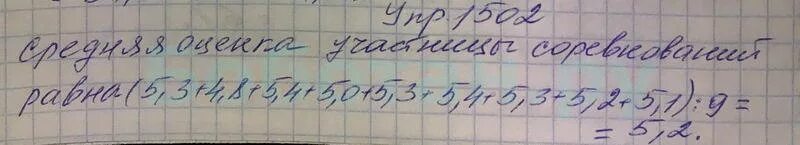 Упр 1502
средняя оценка участницы соревнований
равна (5,3+4,8+5,4+5,0+5,3+5,4+5,3+5,2+5,1):9=
= 5,2.